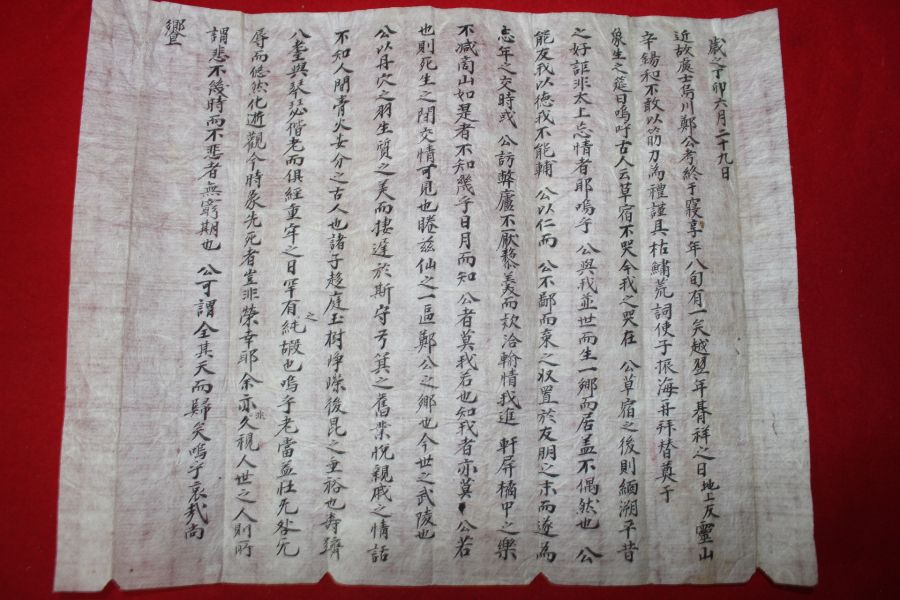 歲之丁卯六月二十九日
近故處士烏川鄭公考終于寢享年八旬有一矣越翌年朞祥之日地上友靈山
辛錫和不敢以筋力爲禮謹具枯鱐荒詞使子振海再拜替奠于
象生之筵曰嗚呼古人云草宿不哭今我之哭在 公草宿之後則緬溯平昔
之好詎非太上忘情者耶嗚乎 公與我並世而生一鄕而居盖不偶然也 公
能友我以德我不能輔 公以仁而 公不鄙而棄之收置於友朋之末而遂爲
忘年之交時或 公訪弊廬不厭藜羹而欸洽輸情我進 軒屛橘中之樂
不减商山如是者不知幾乎日月而知 公者莫我若也知我者亦莫 公若
也則死生之間交情可見也睠玆仙之一區鄭公之鄕也今世之武陵也
公以丹穴之羽生質之美而捿遲於斯守弓箕之舊業悅親戚之情話
不知人間膏火去分之古人也諸子趍庭玉樹崢嶸後昆之垂裕也壽躋
八耋與琴瑟偕老而俱經重牢之日罕有之純嘏也嗚乎老當益壯无咎无
辱而悠然化遊觀今時象先死者豈非榮幸耶余亦非久視人世之人則所
謂悲不幾時而不悲者無窮期也 公可謂全其天而歸矣嗚乎哀哉尙
饗